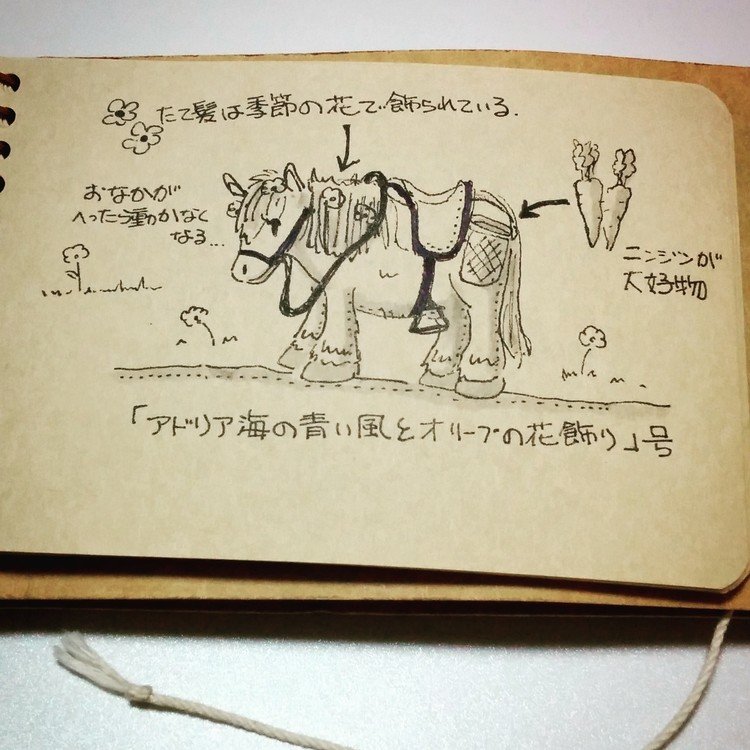 たて髪は季節の花で飾られている.
おなかが
へったら動かなく
なる...
ニンジンが
大好物
「アドリア海の青い風とオリーブの花飾り」号